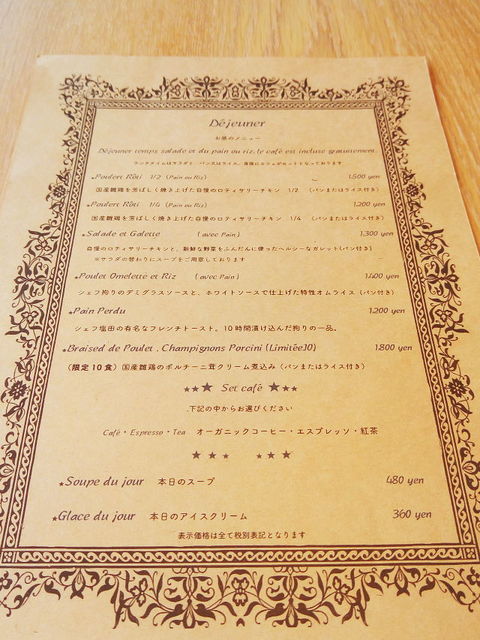 Déjeuner
お昼のメニュー
Déjeuner temps salade et du pain ou riz, le café est incluse gratuitement.
ランチタイムはサラダと、パン又はライス、食後にカフェがセットとなっております
★Poulert Rôti 1/2 (Pain ou Riz) 1,500 yen
国産雛鶏を芳ばしく焼き上げた自慢のロティサリーチキン 1/2 (パンまたはライス付き)
★Poulert Rôti 1/4 (Pain ou Riz) 1,200 yen
国産雛鶏を芳ばしく焼き上げた自慢のロティサリーチキン 1/4 (パンまたはライス付き)
★Salade et Galette (avec Pain) 1,300 yen
自慢のロティサリーチキンと、新鮮な野菜をふんだんに使ったヘルシーなガレット(パン付き)
※サラダの替わりにスープをご用意しております
★Poulet Omelette et Riz (avec Pain) 1,400 yen
シェフ拘りのデミグラスソースと、ホワイトソースで仕上げた特性オムライス (パン付き)
★Pain Perdu 1,200 yen
シェフ塩田の有名なフレンチトースト。10時間漬け込んだ拘りの一品。
★Braised de Poulet . Champignons Porcini (Limitée10) 1,800 yen
(限定10食) 国産雛鶏のポルチーニ茸クリーム煮込み (パンまたはライス付き)
★★★ Set café ★★★
下記の中からお選びください
Café・Espresso・Tea オーガニックコーヒー・エスプレッソ・紅茶
★★★ ★★★
★Soupe du jour 本日のスープ 480 yen
★Glace du jour 本日のアイスクリーム 360 yen
表示価格は全て税別表記となります